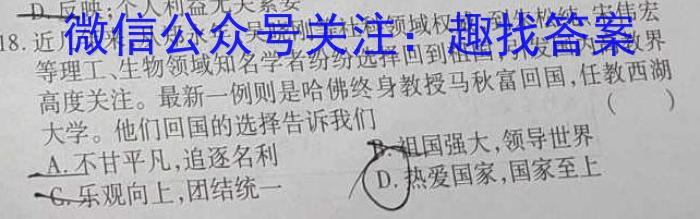 D. 反映:个人利益无关紧要
18. 近
微信公众号关注：趣找答案
等理工、生物领域知名学者纷纷选择回到祖国
教界
高度关注。最新一例则是哈佛终身教授马秋富回国,任教西湖
大学。他们回国的选择告诉我们 ( )
A. 不甘平凡,追逐名利 B. 祖国强大,领导世界
C. 乐观向上,团结统一 D. 热爱国家,国家至上